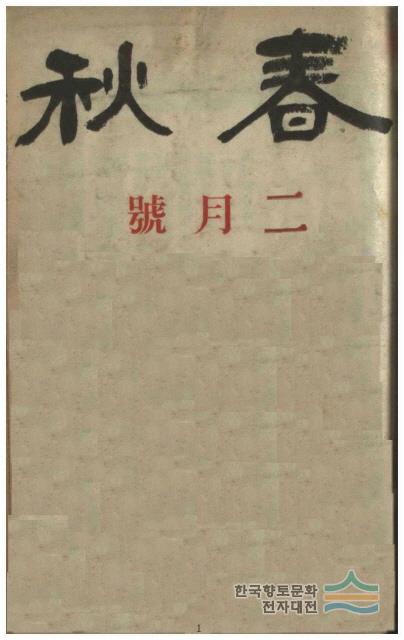 春秋
二月號
한국향토문화
전자대전
1